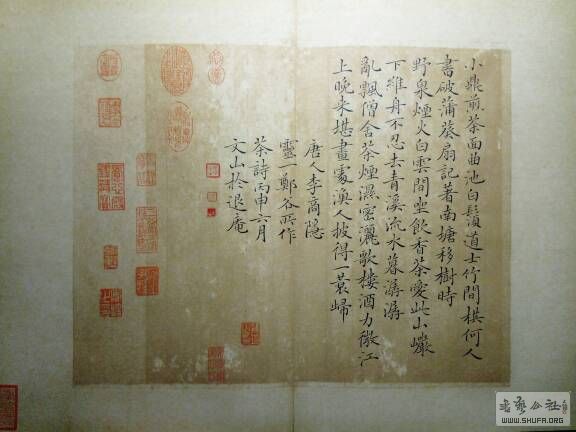 小鼎煎茶面曲池白鬚道士竹間棋何人
書破蒲葵扇記著南塘移樹時
野泉煙火白雲間坐飲香茶愛此山巖
下維舟不忍去青溪流水暮潺潺
亂飄僧舍茶煙濕密灑歌樓酒力微江
上晚来堪畫處漁人披得一蓑歸
唐人李商隱
靈一鄭谷所作
茶詩丙申六月
文山於退庵
WWW.SHUFA.ORG